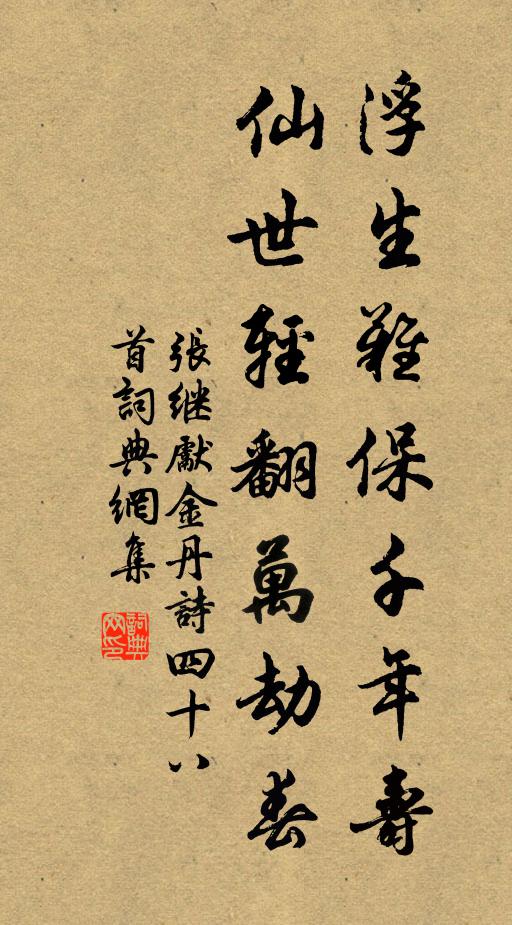 浮生難保千年壽
仙世輕翻萬劫春
張继獻金丹詩四十八
首詞典網集
詞典网印